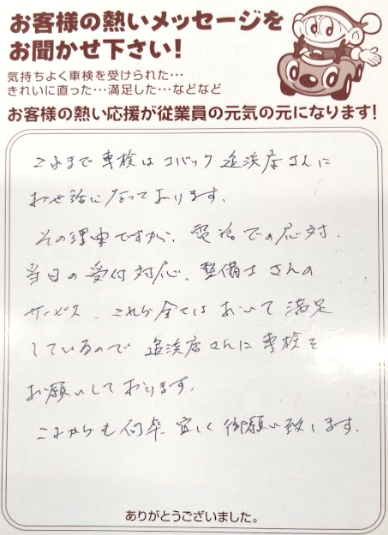 お客様の熱いメッセージを
お聞かせ下さい！
気持ちよく車検を受けられた…
きれいに直った…満足した…などなど
お客様の熱い応援が従業員の元気の元になります！
これまで車検はコバック追浜店さんに
お世話になっております。
その理由ですが、電話での応対、
当日の受付対応、整備士さんの
サービス、これら全てにおいて満足
しているので追浜店さんに車検を
お願いしております。
これからも何卒宜しく御願い致します。
ありがとうございました。